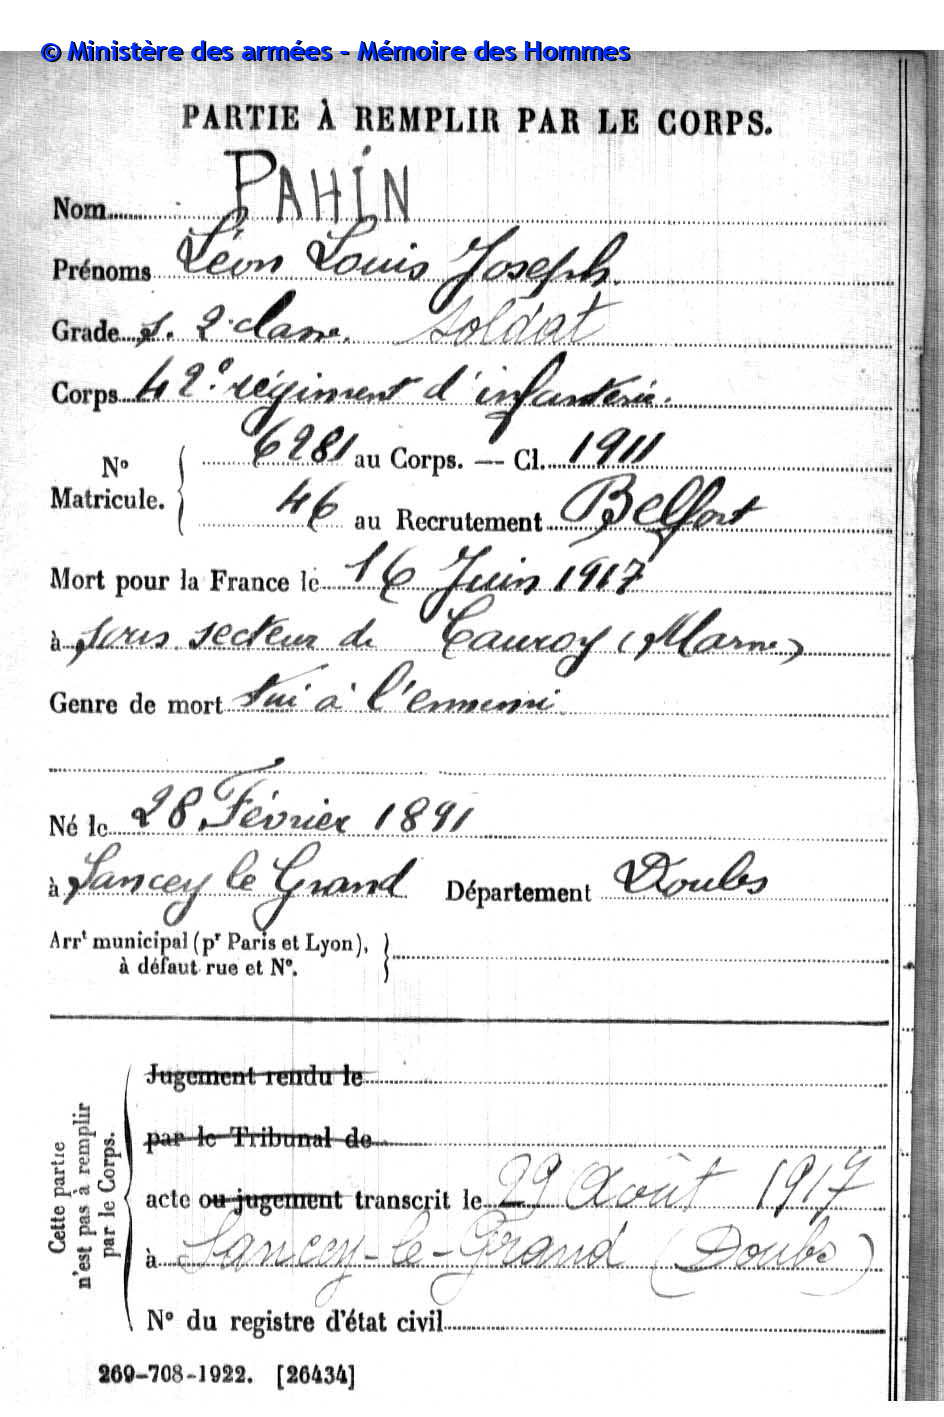 © Ministère des armées - Mémoire des Hommes
PARTIE À REMPLIR PAR LE CORPS.
Nom PAHIN
Prénoms Léon Louis Joseph
Grade s. 2e classe. Soldat
Corps 42e régiment d'infanterie.
No Matricule.
6281 au Corps. — Cl. 1911
46 au Recrutement Belfort
Mort pour la France le 16 Juin 1917
à sous secteur de Cauroy (Marne)
Genre de mort tué à l'ennemi
Né le 28 Février 1891
à Sancey le Grand Département Doubs
Arrt municipal (pr Paris et Lyon),
à défaut rue et No.
Cette partie
n'est pas à remplir
par le Corps.
Jugement rendu le
par le Tribunal de
acte ou jugement transcrit le 29 Août 1917
à Sancey-le-Grand (Doubs)
No du registre d'état civil
269-708-1922. [26434]